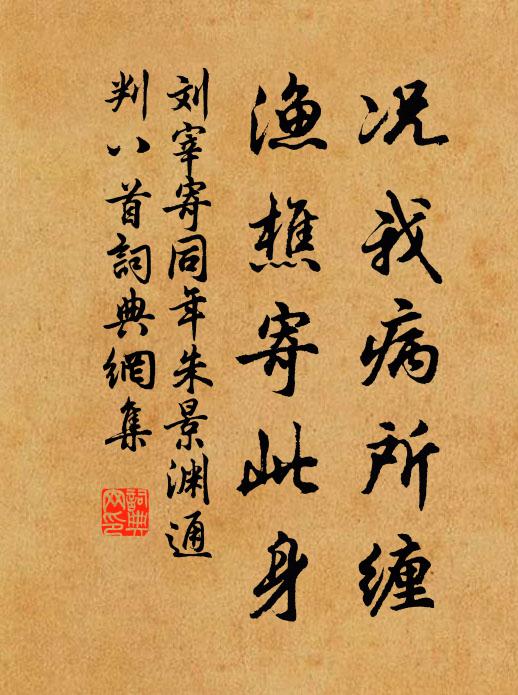 况我病所缠
渔樵寄此身
刘宰寄同年朱景渊通
判八首詞典網集
詞典
网印